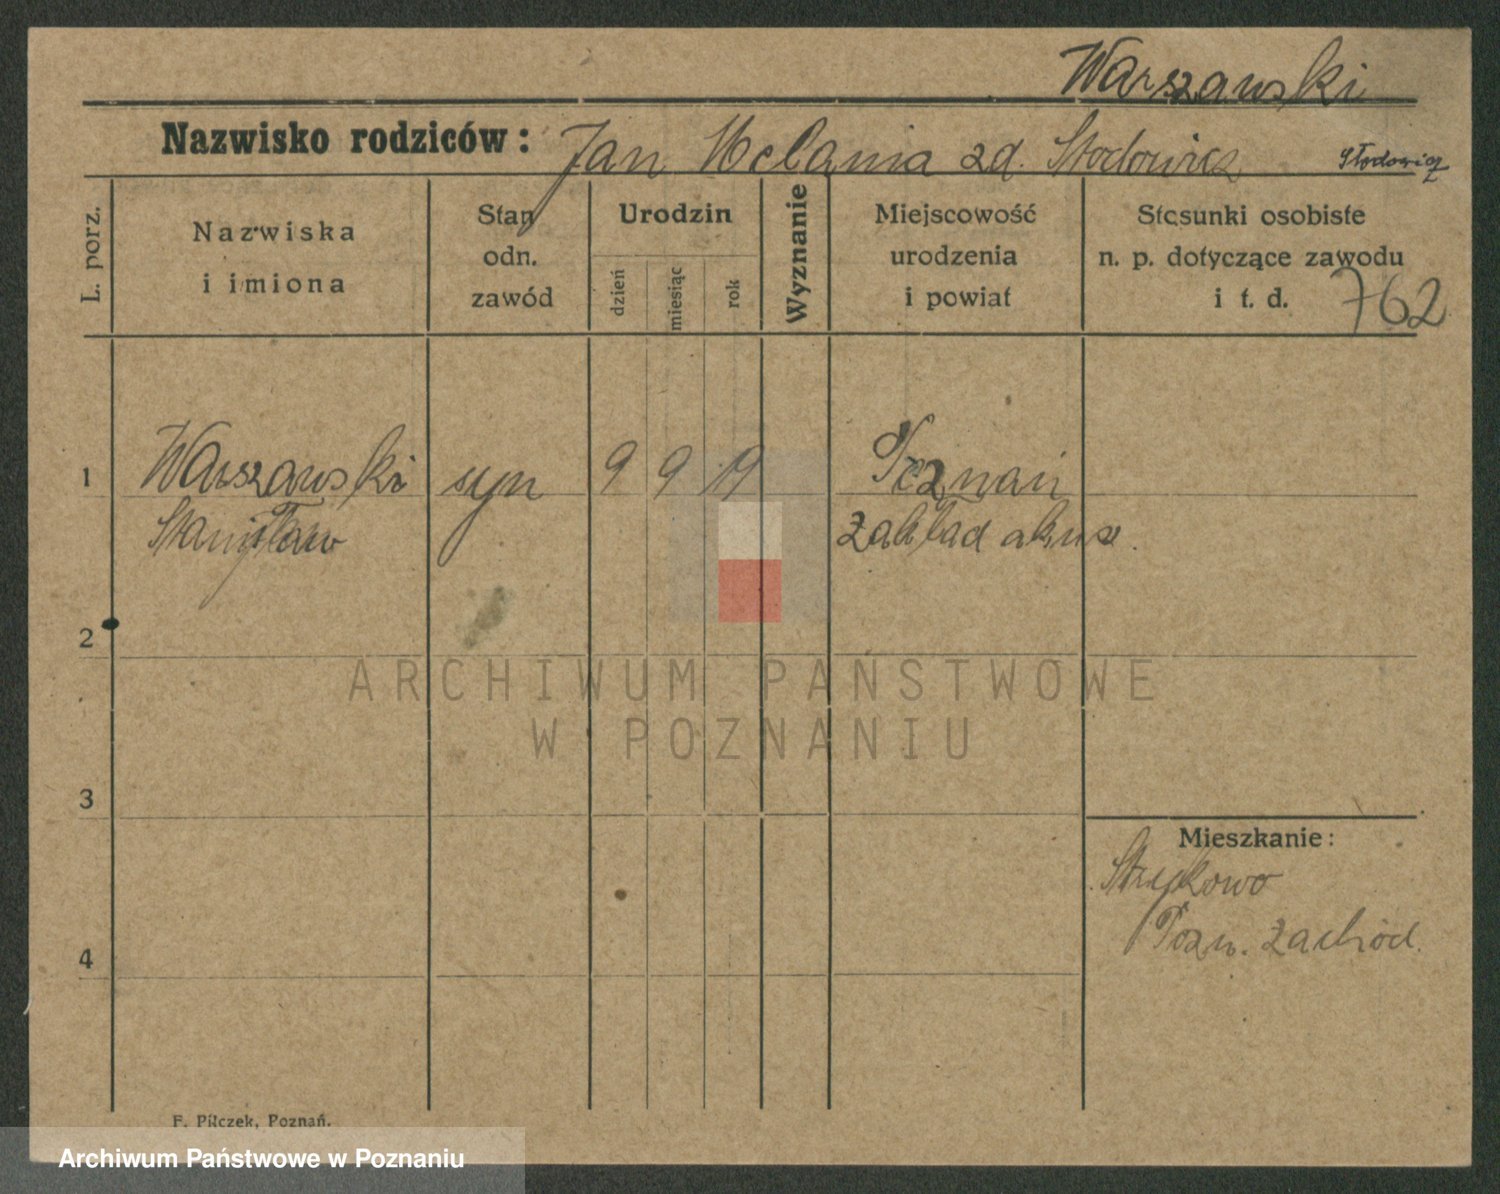 Warszawski
Nazwisko rodziców: Jan Melania zd. Stodowicz Słodowicz
L. porz.
Nazwiska
i imiona
Stan
odn.
zawód
Urodzin
dzień
miesiąc
rok
Wyznanie
Miejscowość
urodzenia
i powiat
Stosunki osobiste
n. p. dotyczące zawodu
i t. d.
762
1 Warszawski syn 9 9 19 Poznań
Stanisław Zakład akusz.
2
3
4
Mieszkanie:
Strykowo
Pozn. Zachód.
F. Pilczek, Poznań.
ARCHIWUM PAŃSTWOWE
W POZNANIU
Archiwum Państwowe w Poznaniu